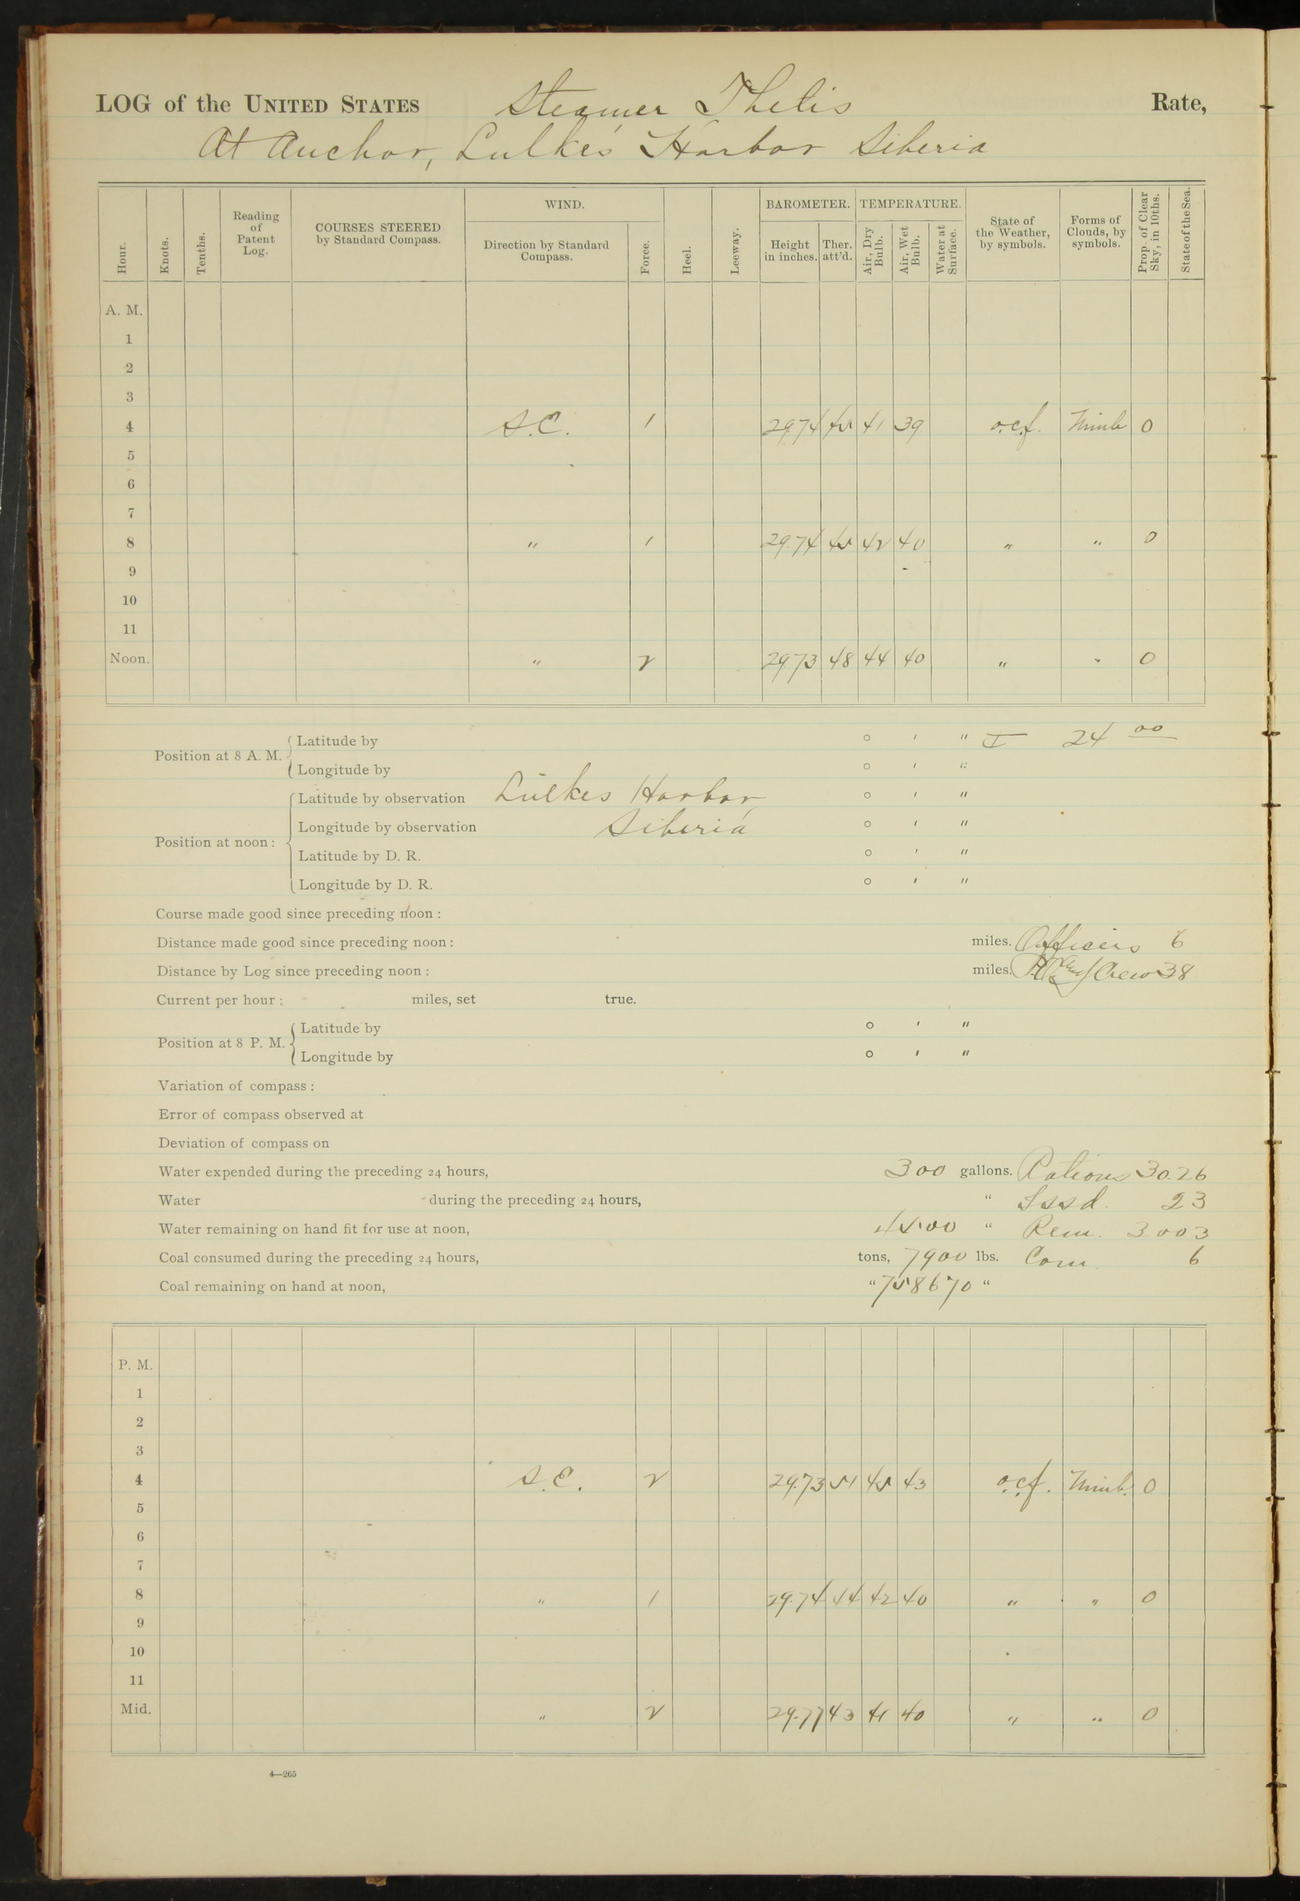 LOG of the UNITED STATES Steamer Thetis Rate,
At Anchor, Lütke's Harbor Siberia
Hour. Knots. Tenths. Reading of Patent Log. COURSES STEERED by Standard Compass. WIND. Direction by Standard Compass. Force. Heel. Leeway. BAROMETER. Height in inches. Ther. att'd. TEMPERATURE. Air, Dry Bulb. Air, Wet Bulb. Water at Surface. State of the Weather, by symbols. Forms of Clouds, by symbols. Prop. of Clear Sky, in 10ths. State of the Sea.
A. M.
1
2
3
4 S.E. 1 29.74 45 41 39 o.c.f. Nimb 0
5
6
7
8 " 1 29.74 45 42 40 " " 0
9
10
11
Noon. " 2 29.73 48 44 40 " " 0
Position at 8 A. M. Latitude by ° ' " I 24 00
Longitude by ° ' "
Position at noon: Latitude by observation Lütkes Harbor ° ' "
Longitude by observation Siberia ° ' "
Latitude by D. R. ° ' "
Longitude by D. R. ° ' "
Course made good since preceding noon:
Distance made good since preceding noon: miles. Officers 6
Distance by Log since preceding noon: miles. Crew 38
Current per hour: miles, set true.
Position at 8 P. M. Latitude by ° ' "
Longitude by ° ' "
Variation of compass:
Error of compass observed at
Deviation of compass on
Water expended during the preceding 24 hours, 300 gallons. Rations 3026
Water during the preceding 24 hours, " Issd. 23
Water remaining on hand fit for use at noon, 4500 " Rem. 3003
Coal consumed during the preceding 24 hours, tons, 7900 lbs. Com. 6
Coal remaining on hand at noon, " 758670 "
P. M.
1
2
3
4 S.E. 2 29.73 51 45 43 o.c.f. Nimb. 0
5
6
7
8 " 1 29.74 44 42 40 " " 0
9
10
11
Mid. " 2 29.77 43 41 40 " " 0
4—265